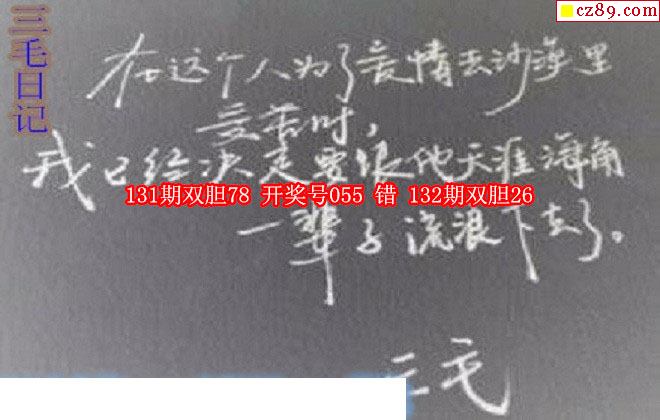 cz89.com
三毛日记
在这个人为了爱情去沙漠里
受苦时，
我已经决定要跟他天涯海角
131期双胆78 开奖号055 错 132期双胆26
一辈子流浪下去了。
三毛